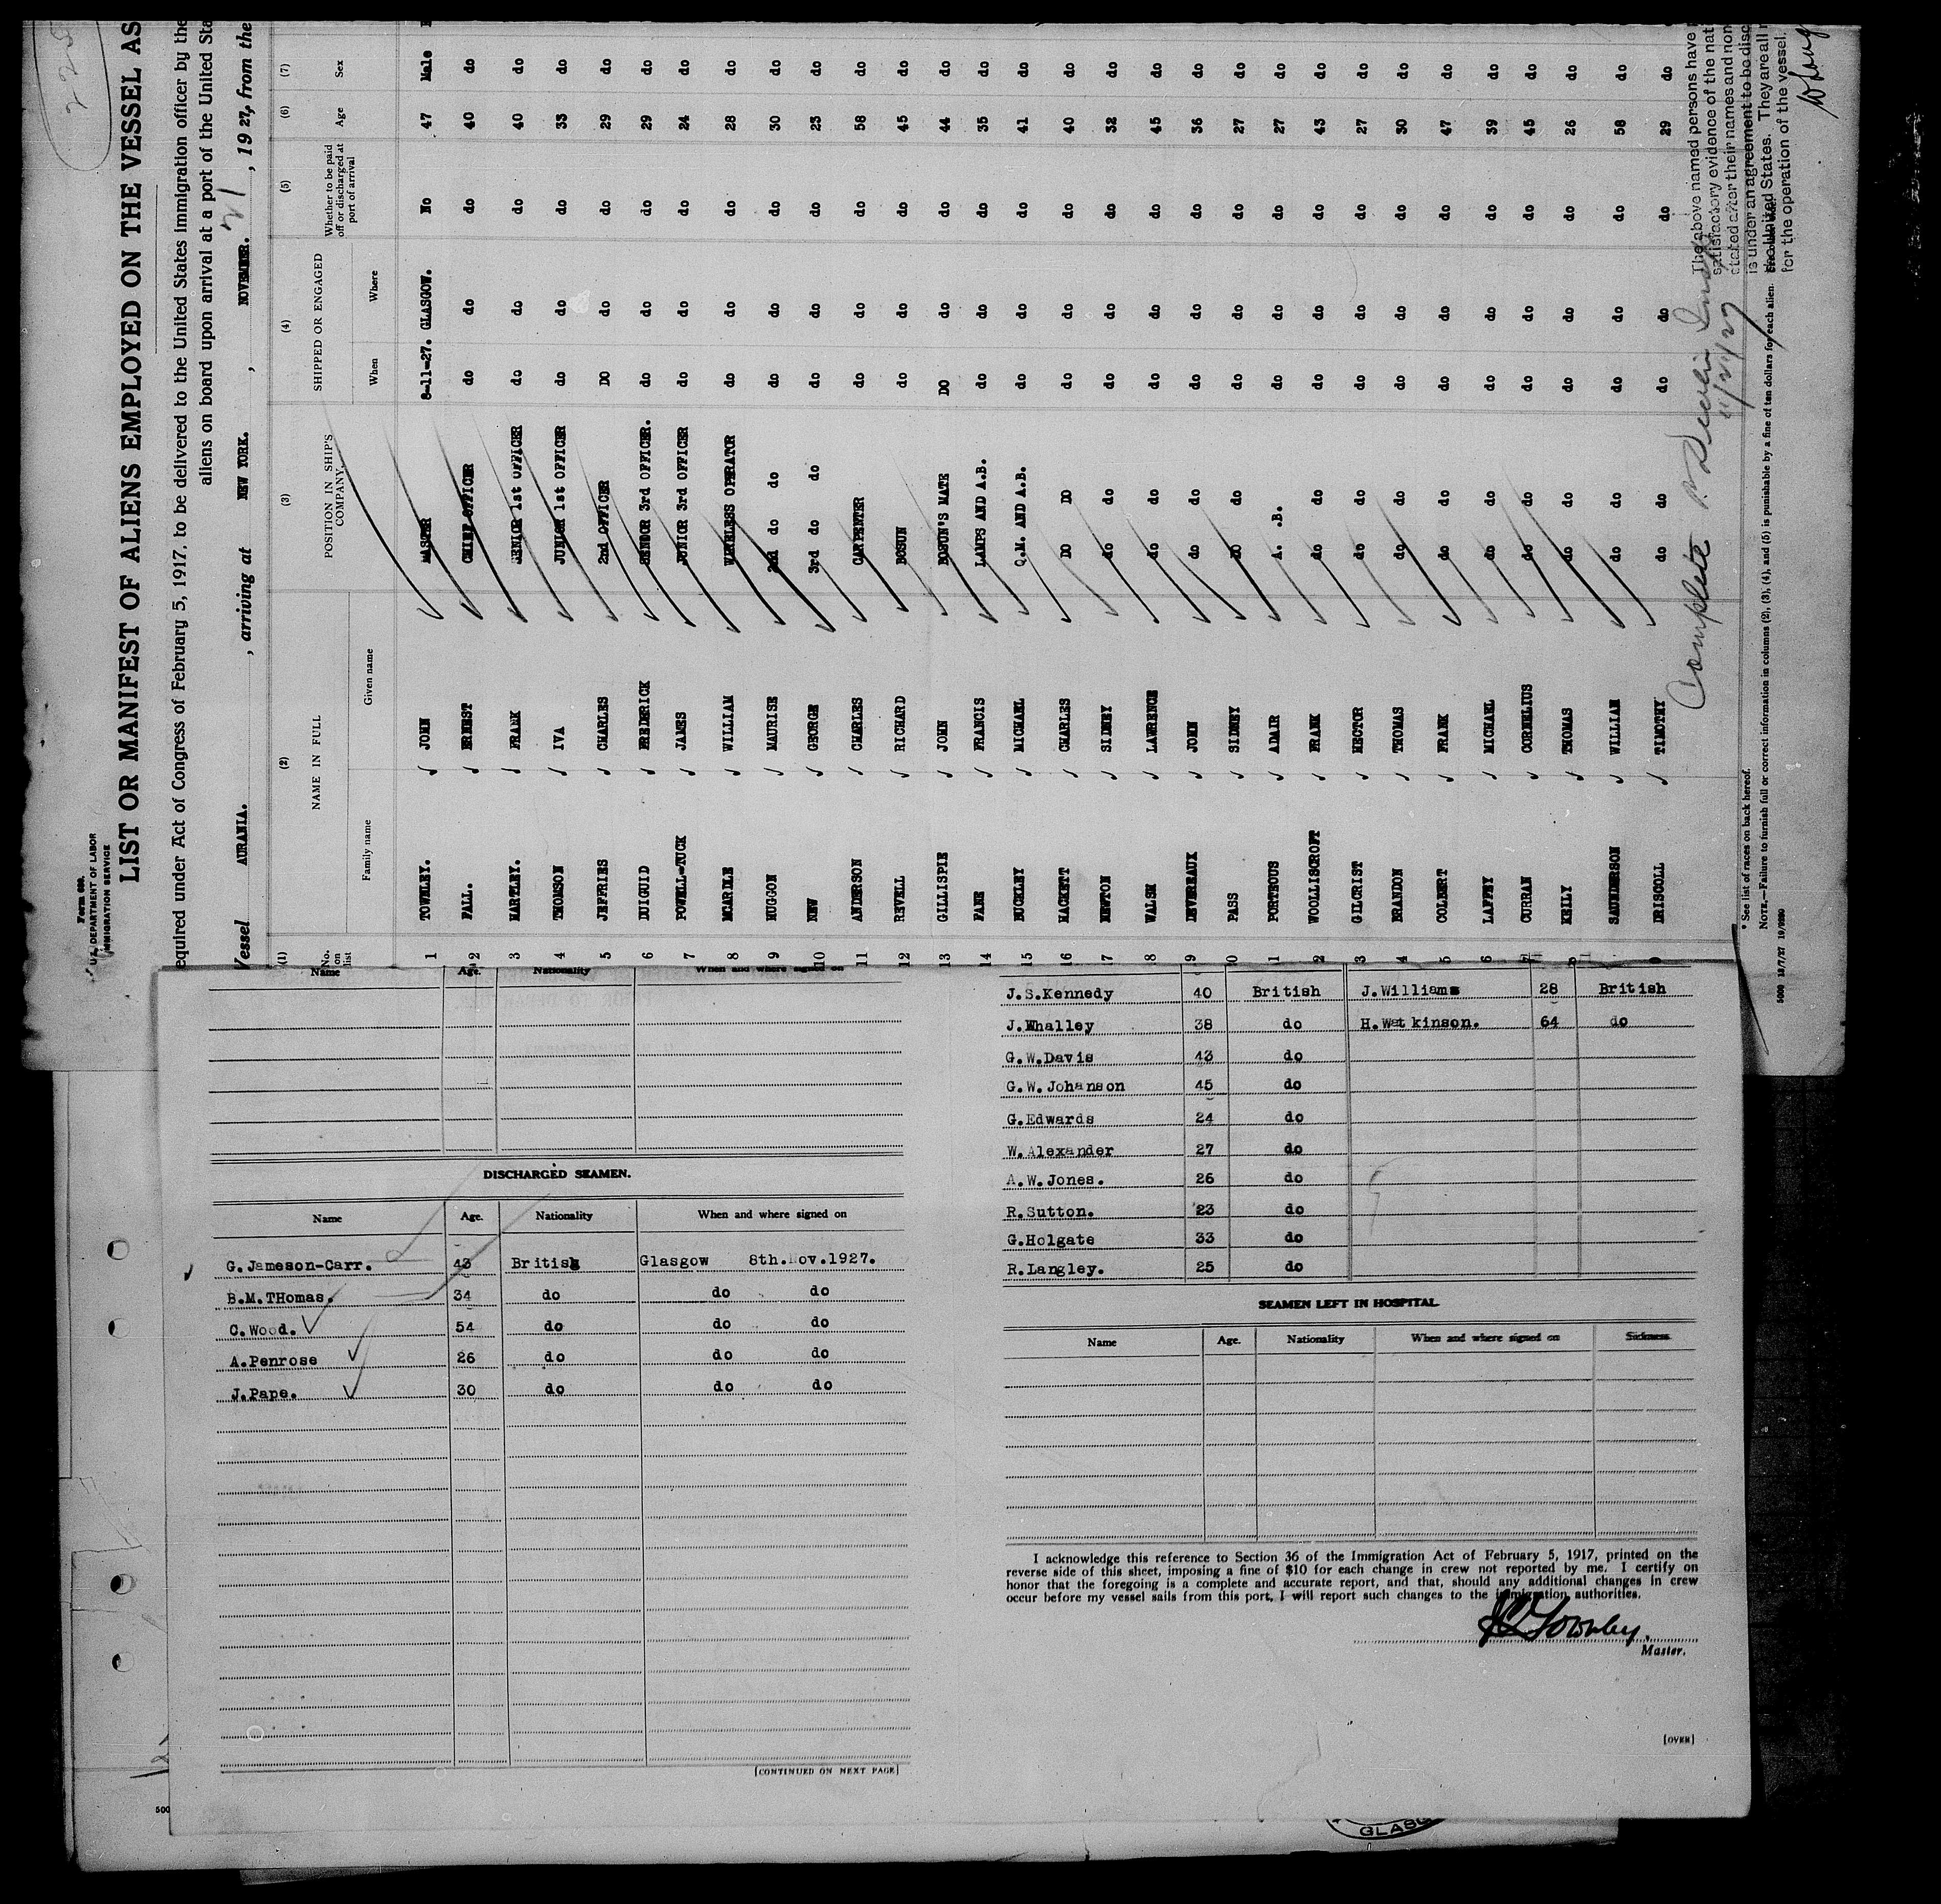 Form 689.
U.S. DEPARTMENT OF LABOR
IMMIGRATION SERVICE
LIST OR MANIFEST OF ALIENS EMPLOYED ON THE VESSEL AS
equired under Act of Congress of February 5, 1917, to be delivered to the United States immigration officer by the
aliens on board upon arrival at a port of the United Sta
Vessel AURANIA. , arriving at NEW YORK. , NOVEMBER. 21 , 1927, from the
(1) (2) (3) (4) (5) (6) (7)
No. on list NAME IN FULL POSITION IN SHIP'S COMPANY. SHIPPED OR ENGAGED Whether to be paid off or discharged at port of arrival Age Sex
Family name Given name When Where
1 TOWNLEY. JOHN MASTER 8-11-27. GLASGOW. No 47 Male
2 FALL. ERNEST CHIEF OFFICER do do do 40 do
3 HARTLEY. FRANK SENIOR 1st OFFICER do do do 40 do
4 THOMSON IVA JUNIOR 1st OFFICER do do do 33 do
5 JEFFRIES CHARLES 2nd OFFICER DO do do 29 do
6 DUIGUID FREDERICK SENIOR 3rd OFFICER. do do do 29 do
7 POWELL-TUCK JAMES JUNIOR 3rd OFFICER do do do 24 do
8 MCARDLE WILLIAM WIRELESS OPERATOR do do do 28 do
9 MUGGON MAURISE 2nd do do do do do 30 do
10 NEW GEORGE 3rd do do do do do 23 do
11 ANDERSON CHARLES CARPENTER do do do 58 do
12 REVELL RICHARD BOSUN do do do 45 do
13 GILLISPIE JOHN BOSUN'S MATE DO do do 44 do
14 PAKE FRANCIS LAMPS AND A.B. do do do 35 do
15 BUCKLEY MICHAEL Q.M. AND A.B. do do do 41 do
16 HACKETT CHARLES DO DO do do do 40 do
17 NEWTON SIDNEY do do do do do 32 do
18 WALSH LAWRENCE do do do do do 45 do
9 DEVEREAUX JOHN do do do do do 36 do
0 PASS SIDNEY DO do do do do 27 do
1 PORTEOUS ADAIR A. .B. do do do 27 do
2 WOOLLISCROFT FRANK do do do do do 43 do
3 GILCRIST HECTOR do do do do do 27 do
4 BRANDON THOMAS do do do do do 30 do
5 COLBERT FRANK do do do do do 47 do
6 LAFFEY MICHAEL do do do do do 39 do
7 CURRAN CORNELIUS do do do do do 45 do
8 KEILY THOMAS do do do do do 26 do
SAUNDERSON WILLIAM do do do do do 58 do
DRISCOLL TIMOTHY do do do do do 29 do
Complete
11/21/27
The above named persons have
satisfactory evidence of the nat
stated after their names and non
is under an agreement to be disc
the United States. They are all
for the operation of the vessel.
* See list of races on back hereof.
NOTE.—Failure to furnish full or correct information in columns (2), (3), (4), and (5) is punishable by a fine of ten dollars for each alien.
5000 13/7/27
Name Age. Nationality When and where signed on
DISCHARGED SEAMEN.
Name Age. Nationality When and where signed on
G.Jameson-Carr. 43 British Glasgow 8th.Nov.1927.
B.M.THomas. 34 do do do
C.Wood. 54 do do do
A.Penrose 26 do do do
J.Pape. 30 do do do
[CONTINUED ON NEXT PAGE]
J.S.Kennedy 40 British J.Williams 28 British
J.Whalley 38 do H.Watkinson. 64 do
G.W.Davis 43 do
G.W.Johanson 45 do
G.Edwards 24 do
W.Alexander 27 do
A.W.Jones. 26 do
R.Sutton. 23 do
G.Holgate 33 do
R.Langley. 25 do
SEAMEN LEFT IN HOSPITAL
Name Age. Nationality When and where signed on Sickness
I acknowledge this reference to Section 36 of the Immigration Act of February 5, 1917, printed on the
reverse side of this sheet, imposing a fine of $10 for each change in crew not reported by me. I certify on
honor that the foregoing is a complete and accurate report, and that, should any additional changes in crew
occur before my vessel sails from this port, I will report such changes to the immigration authorities.
Townley.
Master.
[OVER]
500
GLASG